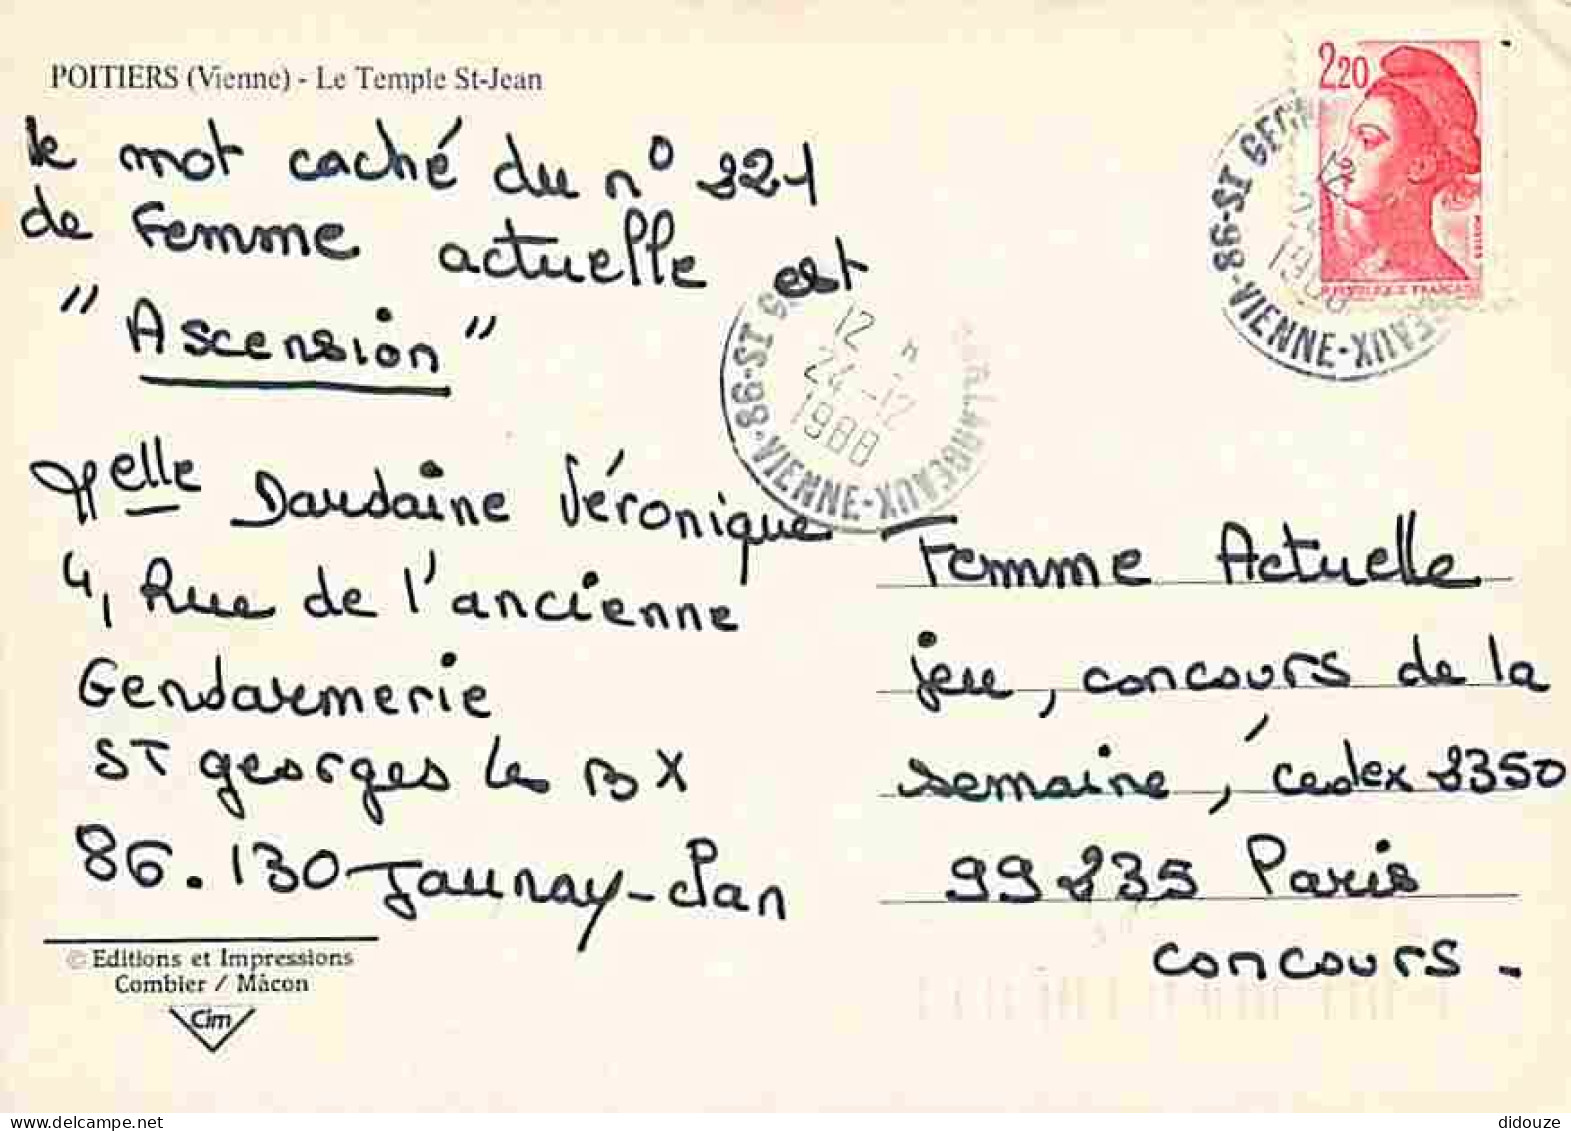 POITIERS (Vienne) - Le Temple St-Jean
le mot caché du n° 221
de Femme actuelle est
" Ascension "
Melle Dardaine Véronique
4, Rue de l'ancienne
Gendarmerie
ST georges les BX
86.130 Jaunay-Clan
© Editions et Impressions
Combier / Mâcon
Cim
2,20
POSTES
REPUBLIQUE FRANÇAISE
86-ST GEO
VIENNE-XUAEBRAL
1988
12 H
24-12
1988
86-ST G
VIENNE-
Femme Actuelle
jeu, concours de la
semaine, cédex 2350
99235 Paris
concours.
didouze